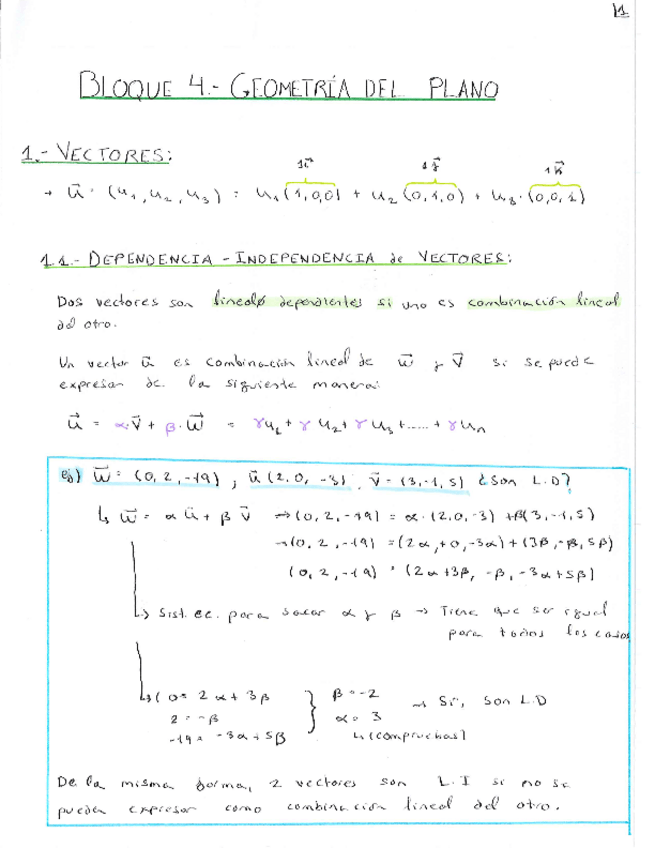 1
BLOQUE 4.- GEOMETRÍA DEL PLANO
1.- VECTORES:
1i⃗ 1j⃗ 1k⃗
→ u⃗ = (u₁, u₂, u₃) = u₁(1,0,0) + u₂(0,1,0) + u₃·(0,0,1)
1.1.- DEPENDENCIA - INDEPENDENCIA de VECTORES:
Dos vectores son dependientes si uno es combinación lineal
del otro.
Un vector u⃗ es combinación lineal de w⃗ y v⃗ si se puede
expresar de la siguiente manera:
u⃗ = α·v⃗ + β·w⃗ = γu₁ + γu₂ + γu₃ + ...... + γuₙ
ej) w⃗ = (0, 2, -19), u⃗(2, 0, -3), v⃗ = (3, -1, 5) ¿Son L.D?
↳ w⃗ = αu⃗ + βv⃗ ⇒ (0, 2, -19) = α·(2,0,-3) + β(3,-1,5)
→ (0, 2, -19) = (2α, +0, -3α) + (3β, -β, 5β)
(0, 2, -19) = (2α+3β, -β, -3α+5β)
↳ Sist. ec. para sacar α y β → Tiene que ser igual
para todos los casos
↳ (0 = 2α + 3β
2 = -β
-19 = -3α + 5β
} β = -2
α = 3
↳ (compruebas)
→ Sí, son L.D
De la misma forma, 2 vectores son L.I si no se
pueden expresar como combinación lineal del otro.